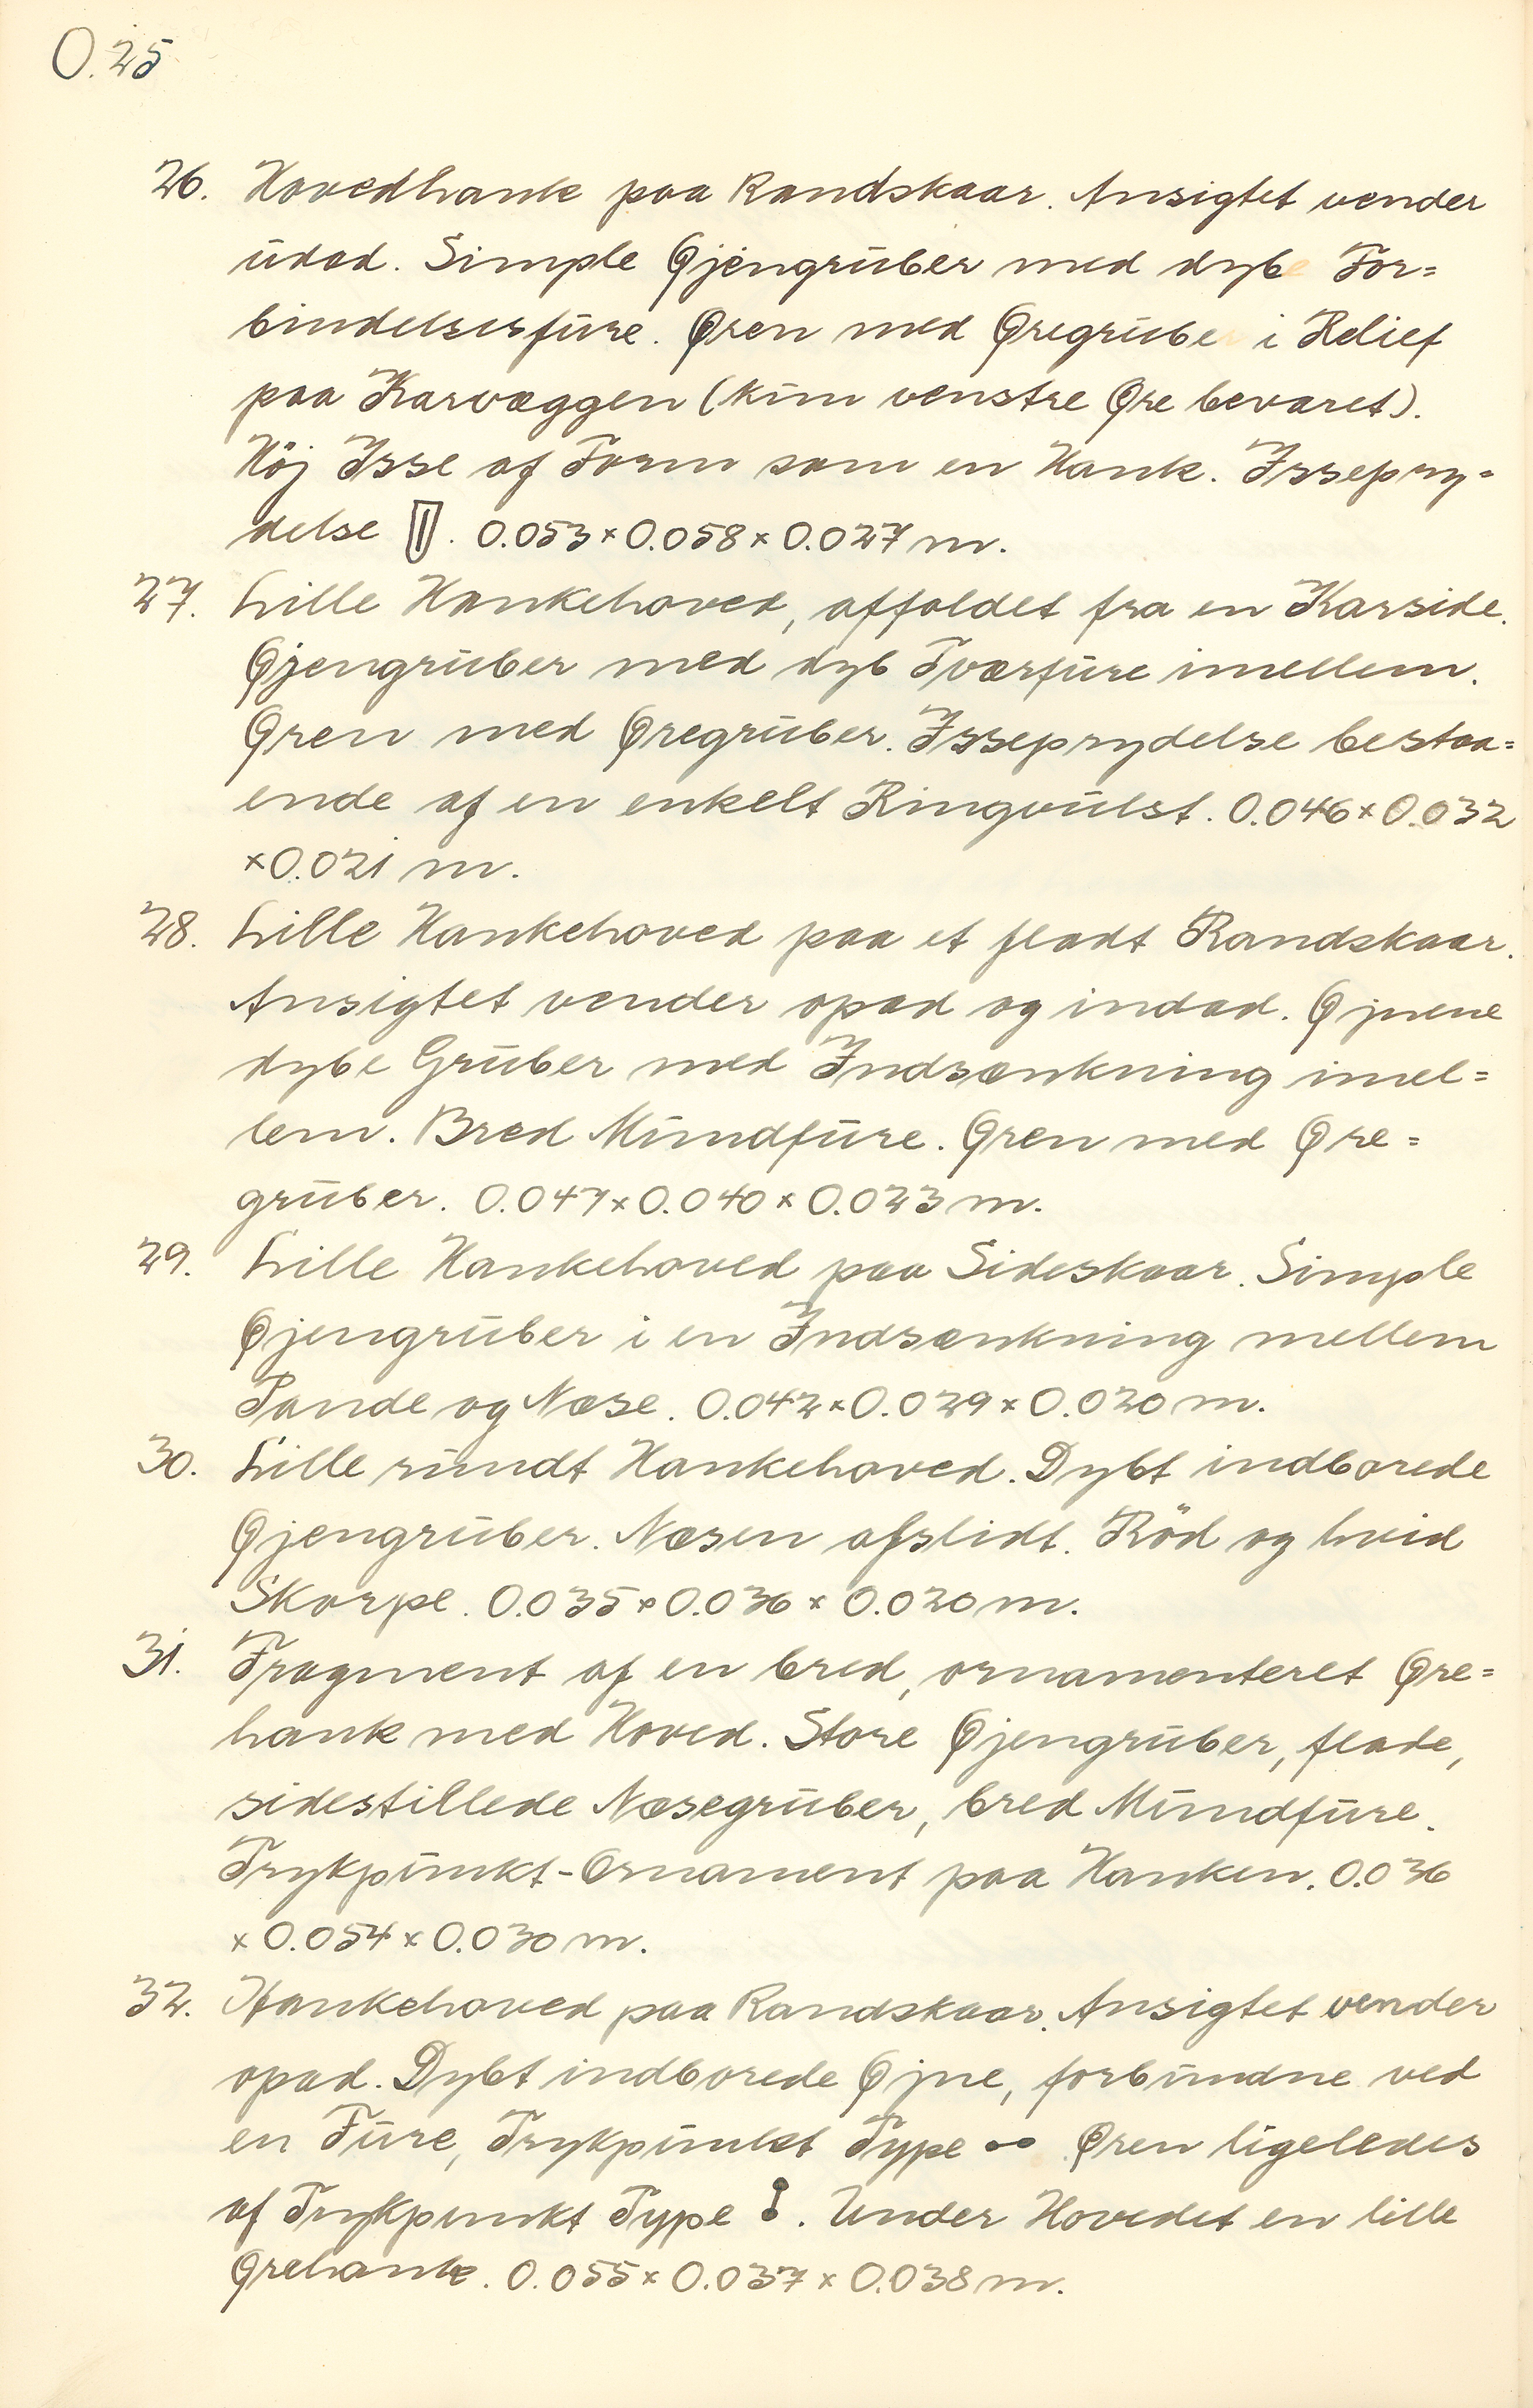 O.25
26. Hovedhank paa Randskaar. Ansigtet vender
udad. Simple Øjengruber med dyb For=
bindelsesfure. Øren med Øregrube i Relief
paa Karvæggen (kun venstre Øre bevaret).
Höj Isse af Form som en Hank. Issepry=
delse . 0.053 × 0.058 × 0.027 m.
27. Lille Hankehoved, affaldet fra en Karside.
Øjengruber med dyb Tværfure imellem.
Øren med Øregruber. Isseprydelse bestaa=
ende af en enkelt Ringvulst. 0.046 × 0.032
× 0.021 m.
28. Lille Hankehoved paa et fladt Randskaar.
Ansigtet vender opad og indad. Øjnene
dybe Gruber med Indsænkning imel=
lem. Bred Mundfure. Øren med Øre=
gruber. 0.047 × 0.040 × 0.023 m.
29. Lille Hankehoved paa Sideskaar. Simple
Øjengruber i en Indsænkning mellem
Pande og Næse. 0.042 × 0.029 × 0.020 m.
30. Lille rundt Hankehoved. Dybt indborede
Øjengruber. Næsen afslidt. Röd og hvid
Skorpe. 0.035 × 0.036 × 0.020 m.
31. Fragment af en bred, ornamenteret Øre=
hank med Hoved. Store Øjengruber, flade,
sidestillede Næsegruber, bred Mundfure.
Trykpunkt-Ornament paa Hanken. 0.036
× 0.054 × 0.030 m.
32. Hankehoved paa Randskaar. Ansigtet vender
opad. Dybt indborede Øjne, forbundne ved
en Fure, Trykpunkt Type Øren ligeledes
af Trykpunkt Type . Under Hovedet en lille
Ørehank. 0.055 × 0.037 × 0.038 m.